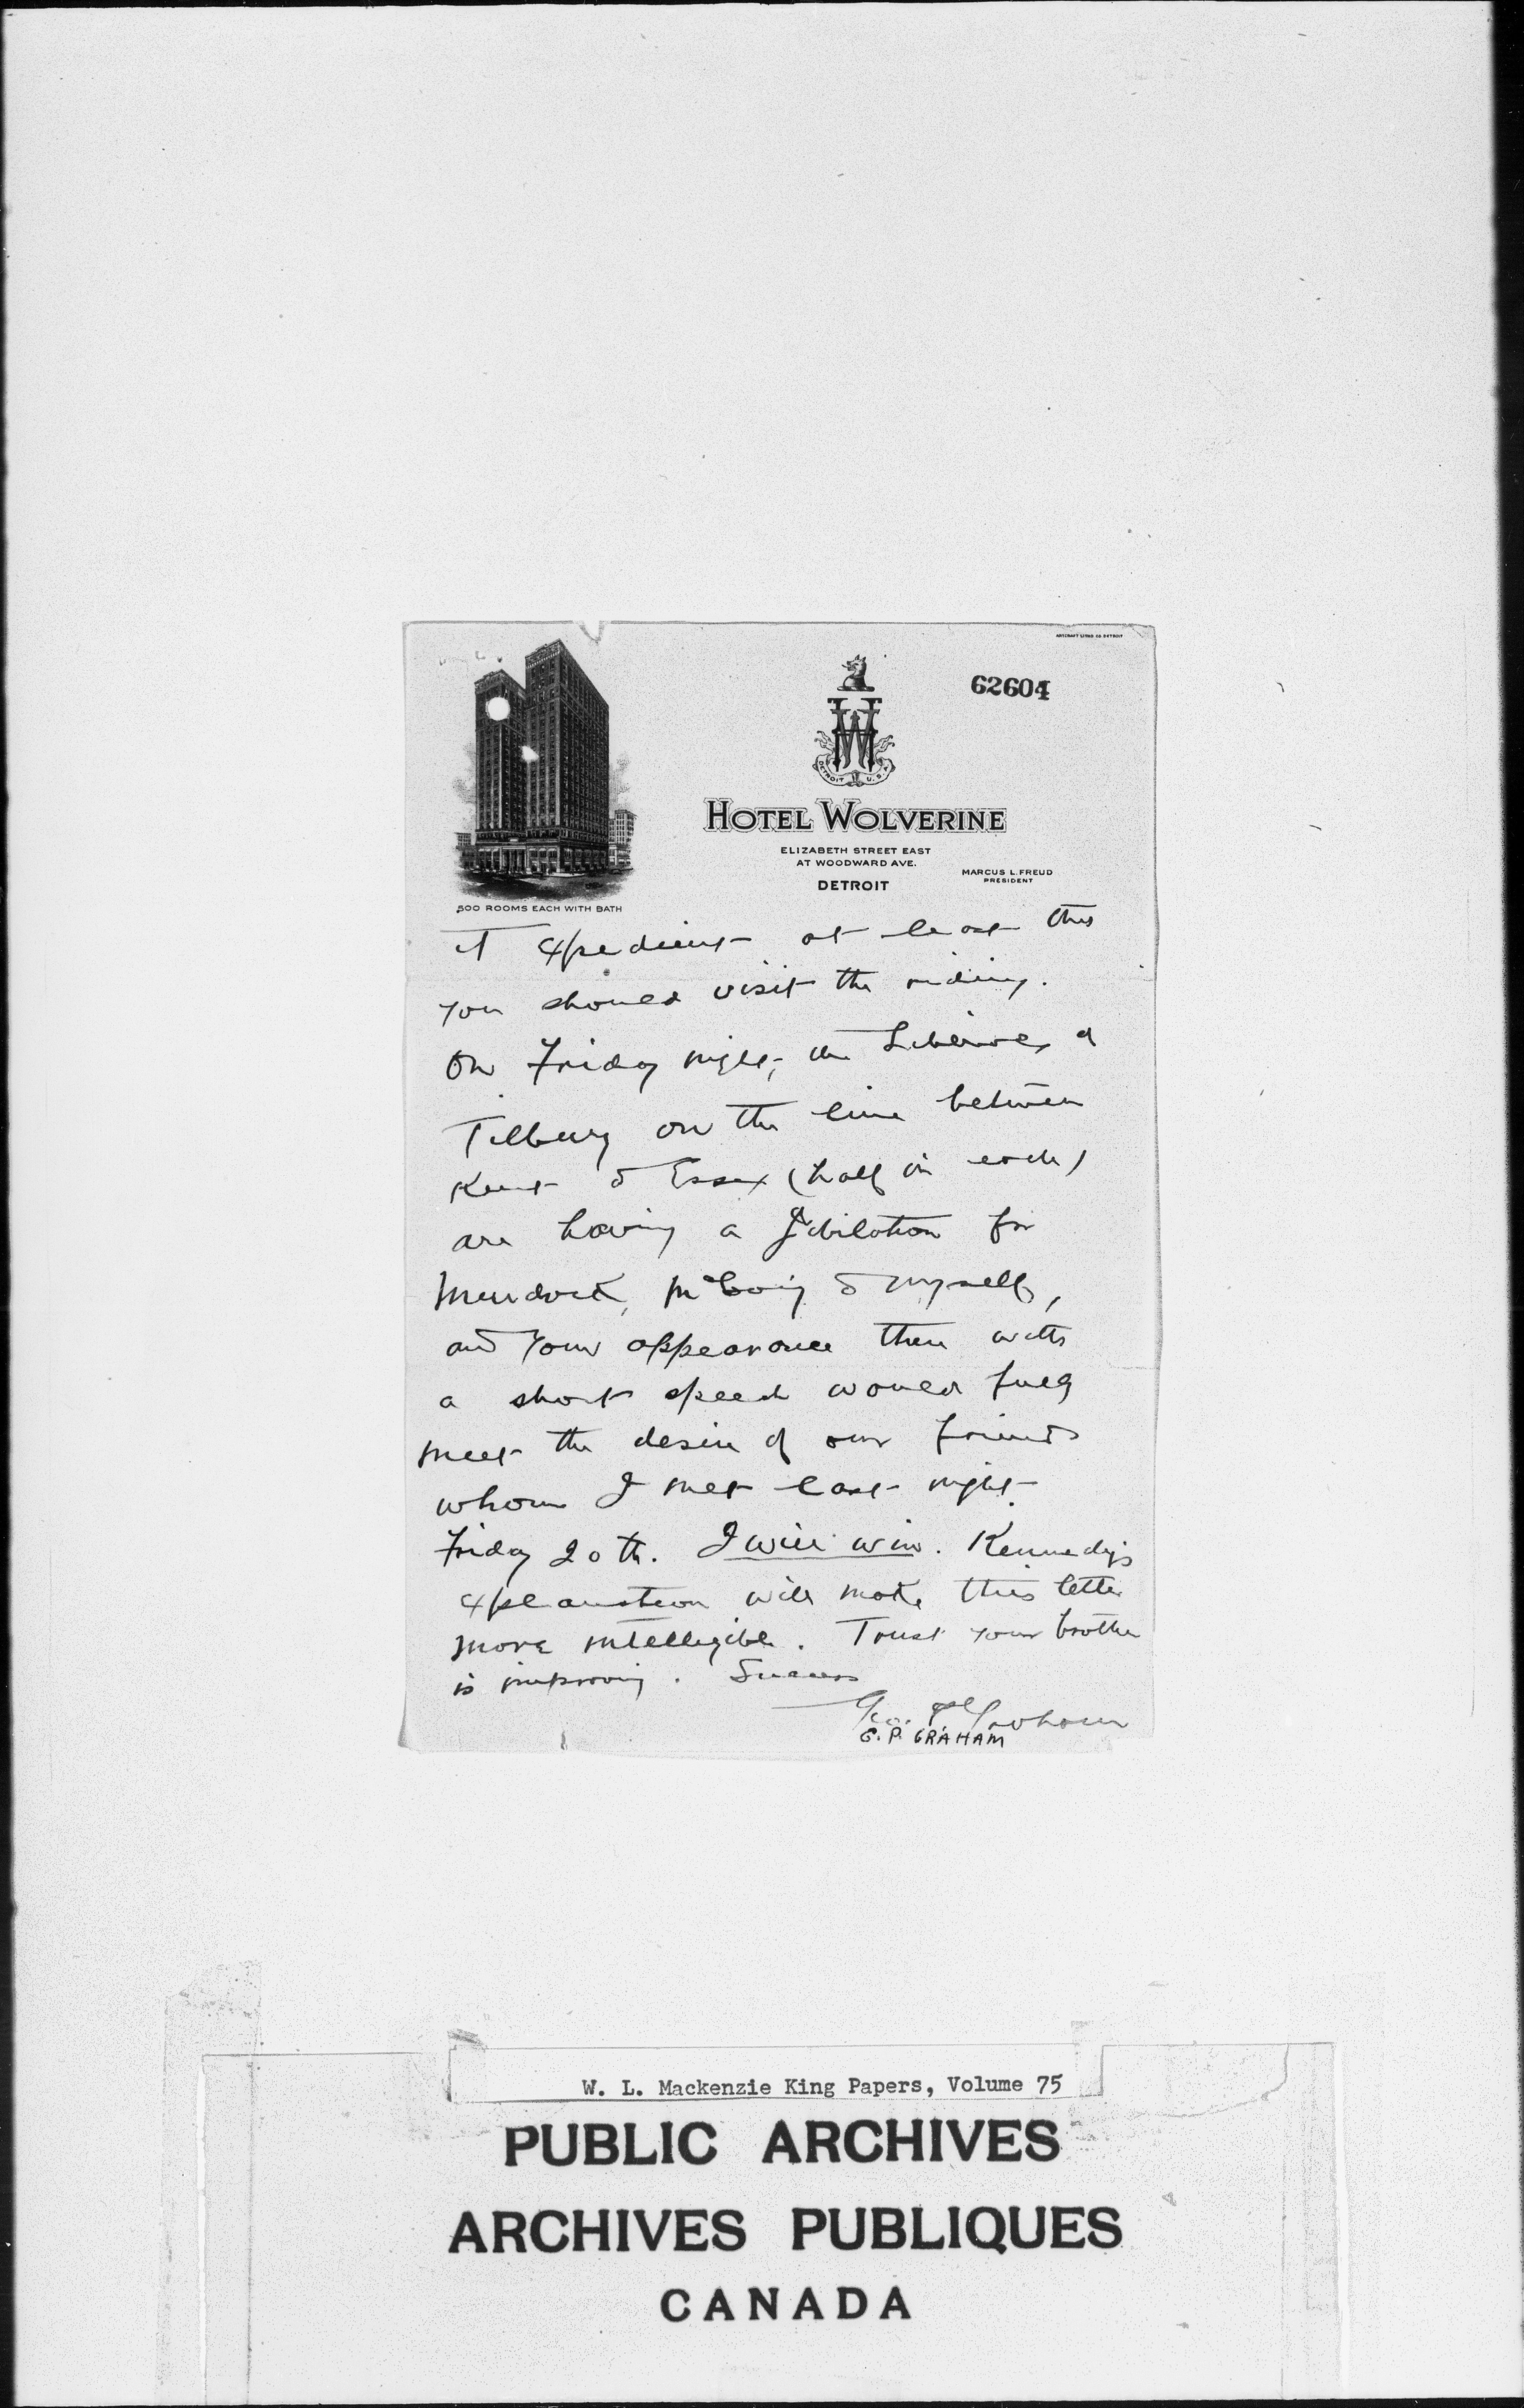 ARTCRAFT LITHO CO DETROIT
62604
DETROIT U.S.A.
HOTEL WOLVERINE
ELIZABETH STREET EAST
AT WOODWARD AVE.
MARCUS L. FREUD
PRESIDENT
DETROIT
500 ROOMS EACH WITH BATH
it expedient at least that
you should visit the riding.
On Friday night, the Liberals of
Tilbury on the line between
Kent & Essex (half in each)
are having a Jubilation for
Murdock, McCoig & myself,
and your appearance there with
a short speech would fully
meet the desire of our friends
whom I met last night
Friday 20th. I will win. Kennedy's
explanation will make this letter
more intelligible. Trust your brother
is improving. Success
Geo. P. Graham
G.P. GRAHAM
W. L. Mackenzie King Papers, Volume 75
PUBLIC ARCHIVES
ARCHIVES PUBLIQUES
CANADA